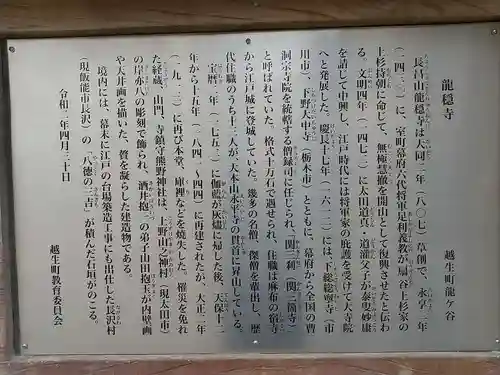 龍穏寺
越生町龍ケ谷
長昌山龍穏寺は大同二年(八〇七)草創で、永享二年
(一四三〇)に、室町幕府六代将軍足利義教が扇谷上杉家の
上杉持朝に命じて、無極慧徹を開山として復興させたと伝わ
る。文明四年(一四七二)に太田道真、道灌父子が泰叟妙康
を請じて中興し、江戸時代には将軍家の庇護を受けて大寺院
へと発展した。慶長十七年(一六一二)には、下総総寧寺(市
川市)、下野大中寺(栃木市)とともに、幕府から全国の曹
洞宗寺院を統轄する僧録司に任じられ、「関三刹(関三箇寺)」
と呼ばれていた。格式十万石で遇せられ、住職は麻布の宿寺
から江戸城に登城していた。幾多の名僧、傑僧を輩出し、歴
代住職のうち十三人が、大本山永平寺の貫首に昇山している。
宝暦二年(一七五二)に伽藍が灰燼に帰した後、天保十二
年から十五年(一八四一~四四)に再建されたが、大正二年
(一九一三)に再び本堂、庫裡などを焼失した。罹災を免れ
た経蔵、山門、寺鎮守熊野神社は、上野山之神村(現太田市)
の岸亦八の彫刻で飾られ、酒井抱一の弟子山田抱玉が内壁画
や天井画を描いた、贅を凝らした建造物である。
境内には、幕末に江戸の台場築造工事にも出仕した長沢村
(現飯能市長沢)の「八徳の三吉」が積んだ石垣がのこる。
令和二年四月三十日
越生町教育委員会